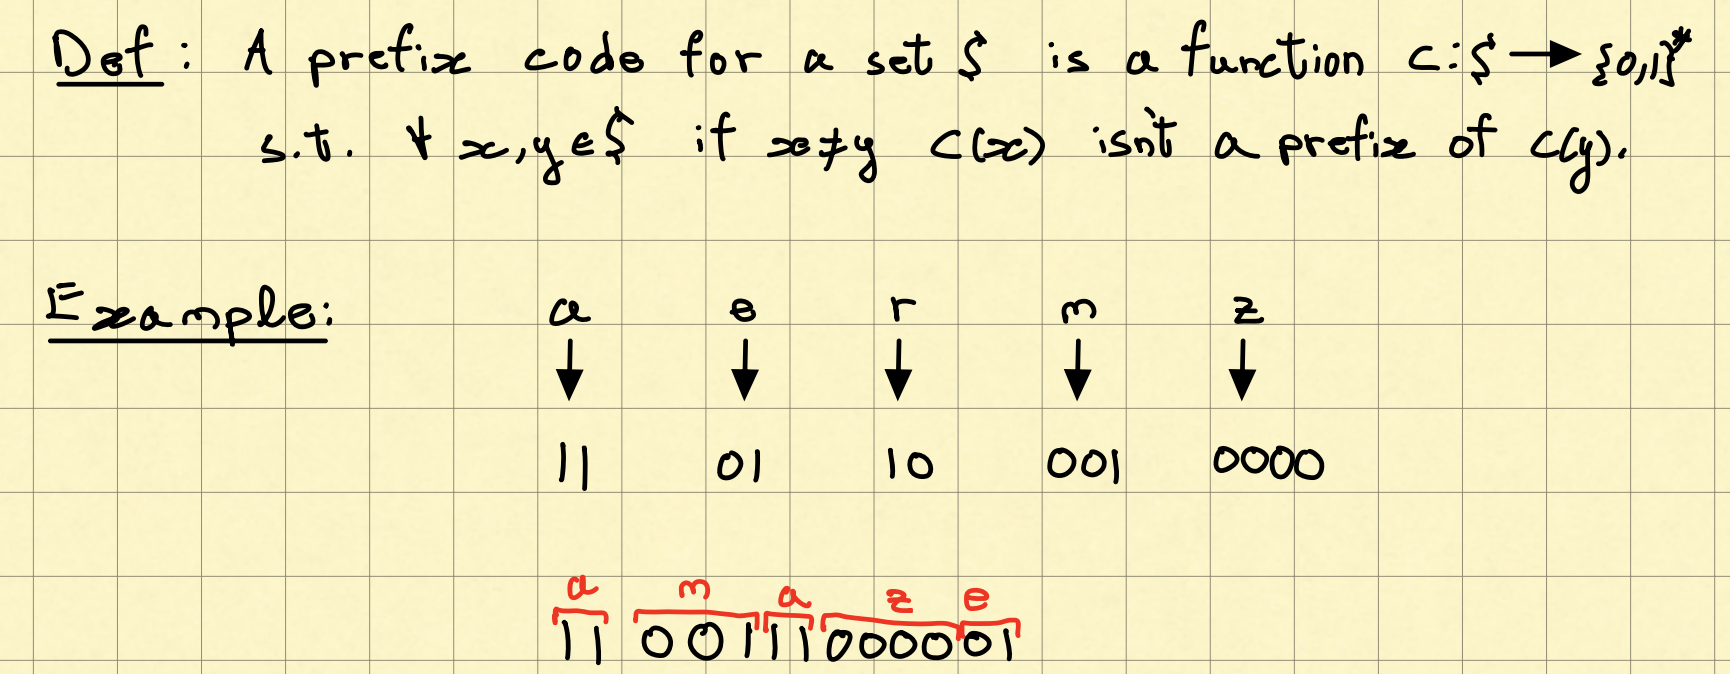 Def: A prefix code for a set S is a function c:S → {0,1}*
s.t. ∀ x,y∈S if x≠y c(x) isn't a prefix of c(y).
Example: a e r m z
↓ ↓ ↓ ↓ ↓
11 01 10 001 0000
a m a z e
11 00111000001